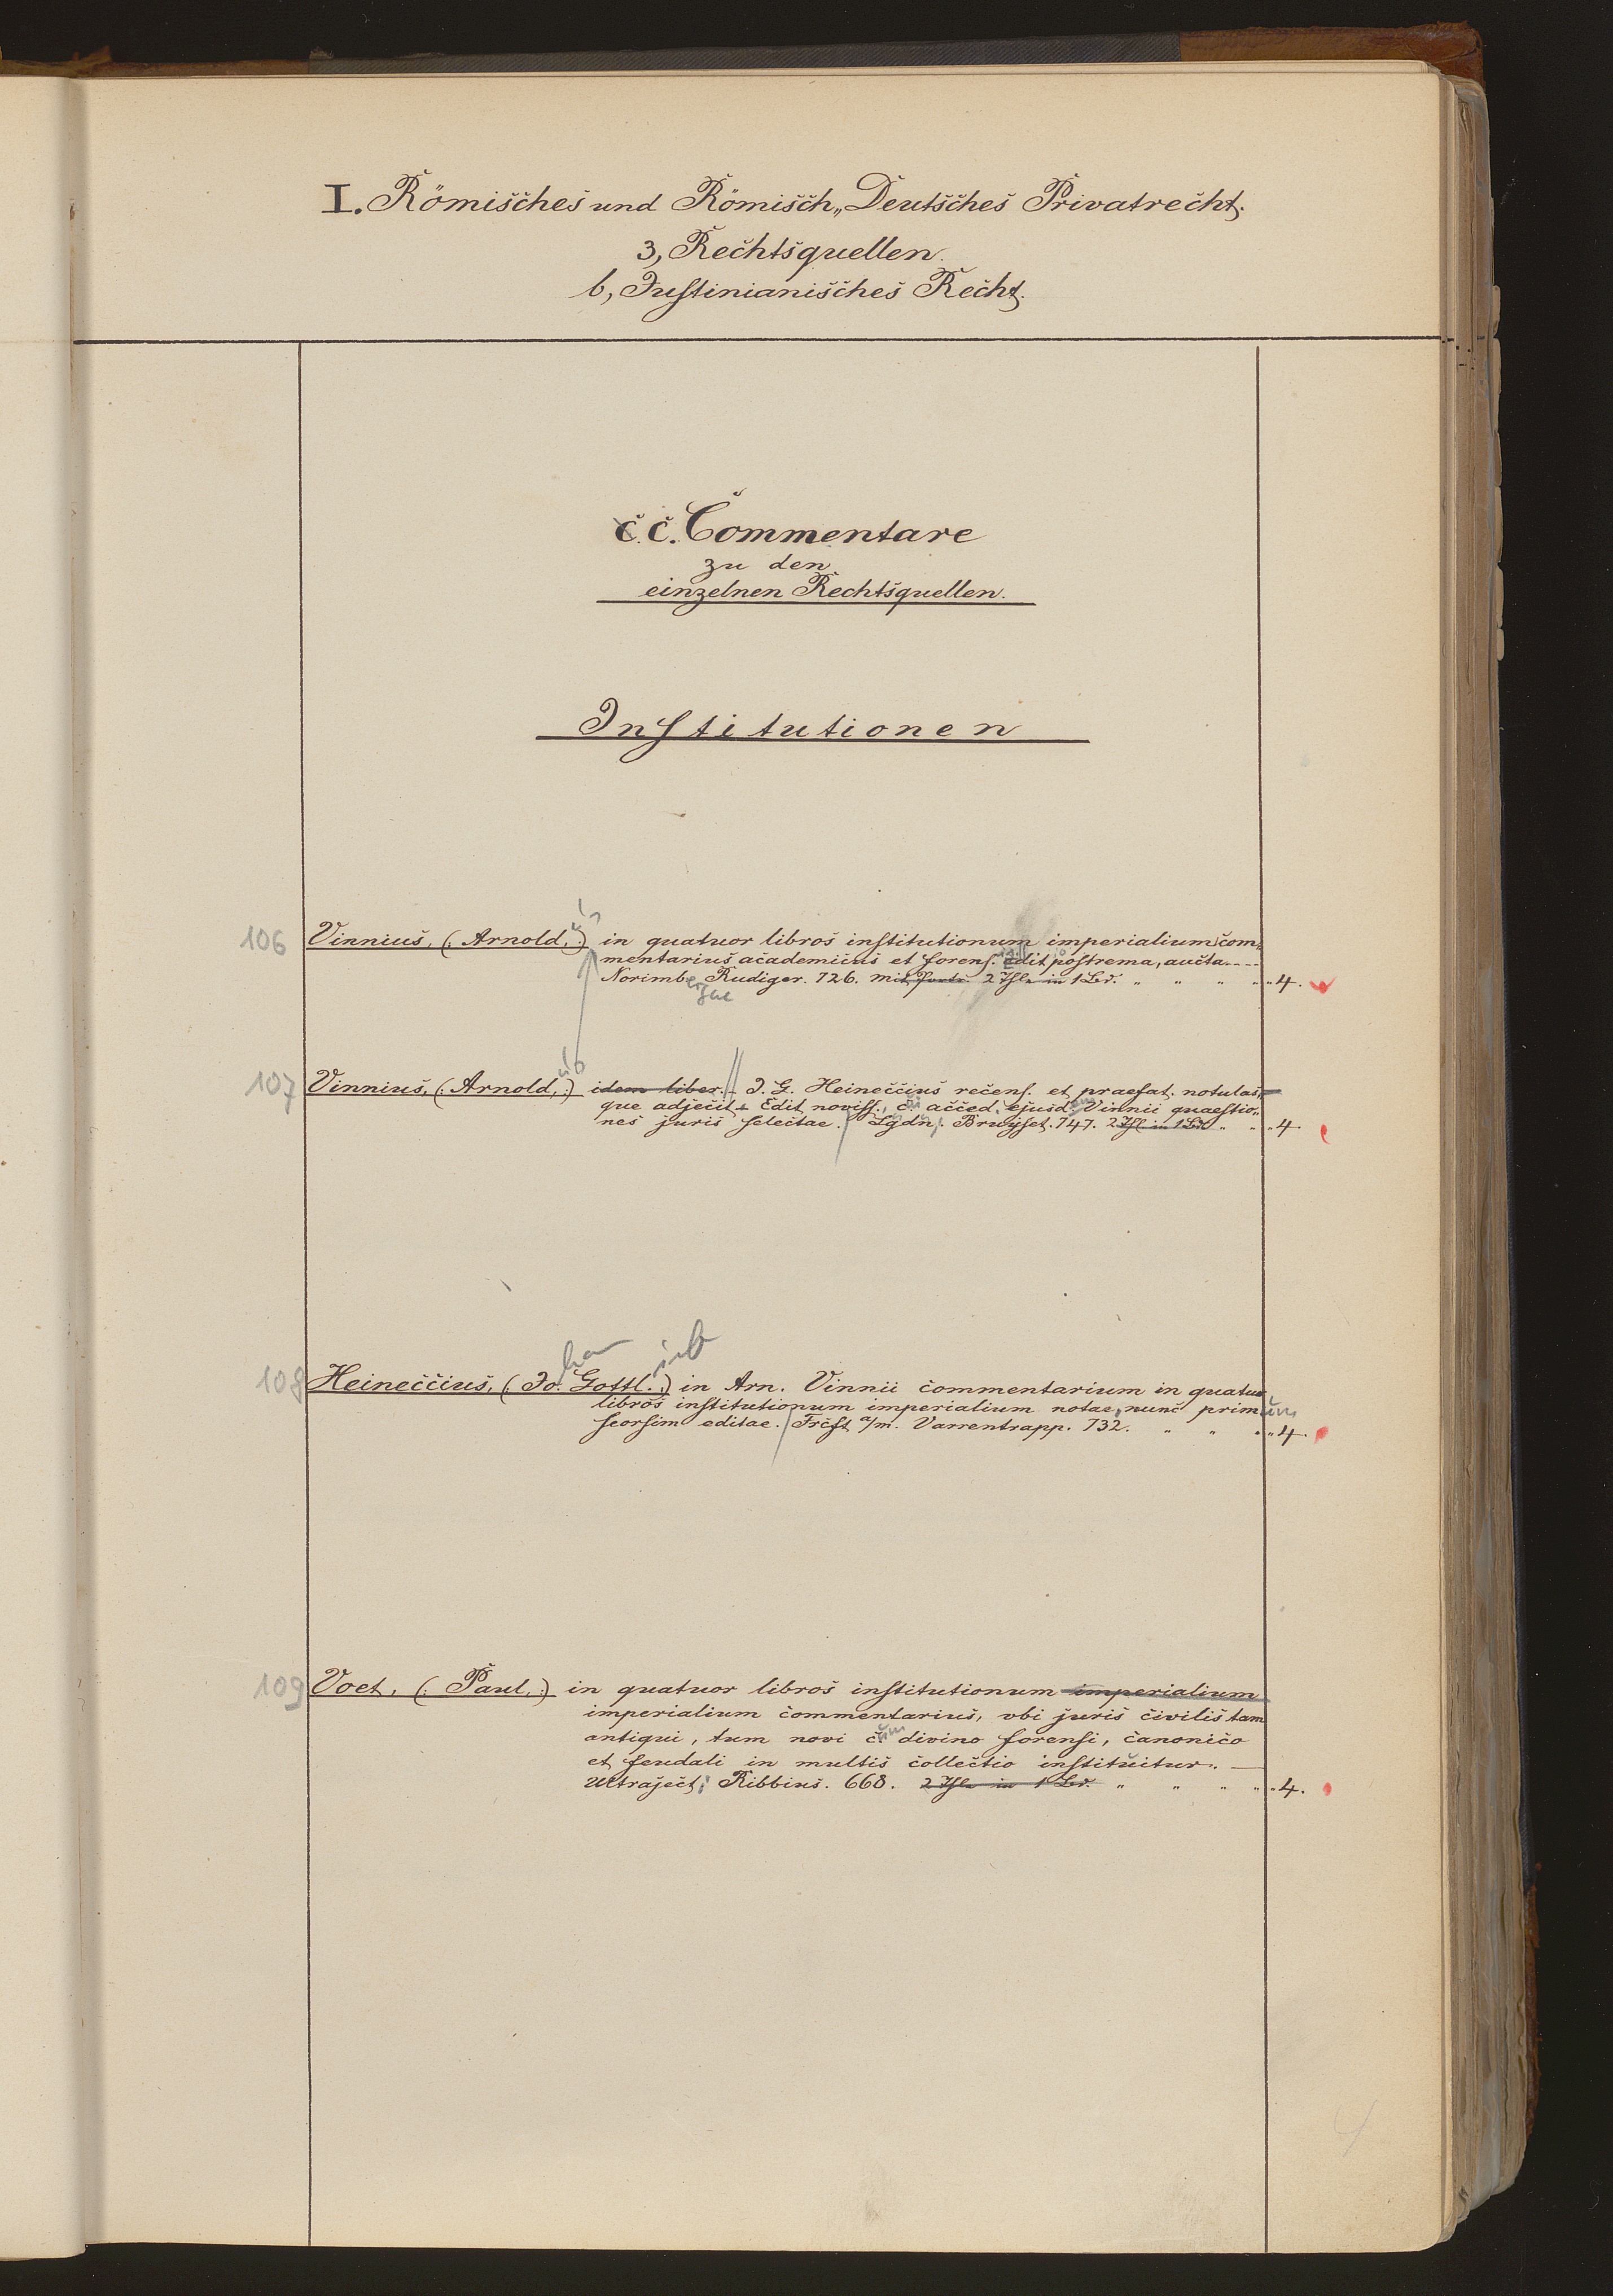 I. Römisches und Römisch„Deutsches Privatrecht.
3, Rechtsquellen.
b, Justinianisches Recht.
c. c. Commentare
zu den
einzelnen Rechtsquellen.
Institutionen
106 Vinnius, (: Arnold,:) in quatuor libros institutionum imperialium com„
mentarius academicus et forens. edit postrema, aucta.
Norimbergae Rudiger. 726. mit Portr. 2 Thle in 1 Bd. „ „ „ „ 4.
107 Vinnius, (: Arnold,:) idem liber. J. G. Heineccius recens. et praefat. notulas„
que adjecit. Edit noviss., c. acced. ejusd. Vinnii quaestio„
nes juris selectae. Lgdn. Bruyset. 747. 2 Thl in 1 Bd. „ „ „ 4.
108 Heineccius, (: Jo. Gottl.:) in Arn. Vinnii commentarium in quatuor
libros institutionum imperialium notae, nunc primum
seorsim editae. Frcft a/m. Varrentrapp. 732. „ „ „ „ 4.
109 Voet, (: Paul,:) in quatuor libros institutionum imperialium
imperialium commentarius, ubi juris civilis tam
antiqui, tum novi cum divino forensi, canonico
et feudali in multis collectio instituitur.
Ultraject. Ribbius. 668. 2 Thle in 1 Bd. „ „ „ „ 4.